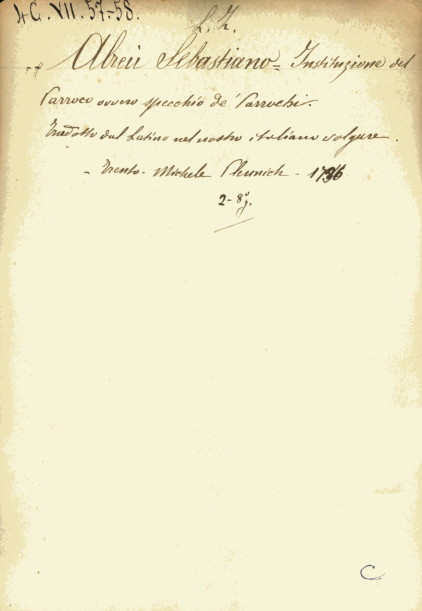 4 C. VII. 57-58.
Abreu Sebastiano = Instituzione del
Parroco ovvero specchio de' Parrochi.
Tradotto dal Latino nel nostro italiano volgare.
- Trento - Michele - 1736
2 - 8°
C